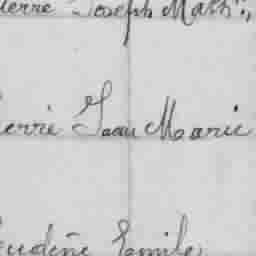 ierre Joseph Math
ierre Jean Marie
Emile